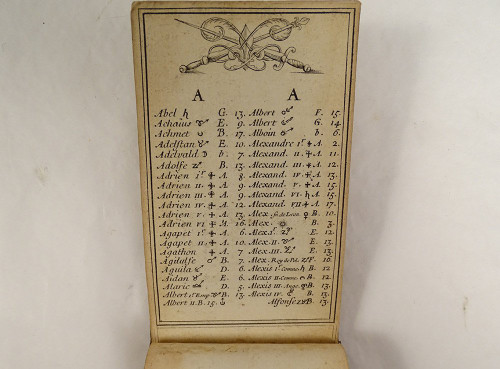 A
Abel ♄ G. 13.
Achaius E. 9.
Achmet B. 17.
Adelstan E. 10.
Adelvald ☽ b. 7.
Adolfe B. 13.
Adrien 1.r ✠ A. 8.
Adrien II. ✠ A. 9.
Adrien III. ✠ A. 9.
Adrien IV. ✠ A. 12.
Adrien V. ✠ A. 13.
Adrien VI ✠ A. 16.
Agapet 1.r ✠ A. 6.
Agapet II. ✠ A. 10.
Agathon ✠ A. 7.
Agilulfe ♂ B. 7.
Aguila D. 6.
Aidan E. 6.
Alaric D. 5.
Albert 1.r Emp. B. 13.
Albert II. B. 15.
A
Albert F. 15.
Albert G. 14.
Alboin b. 6.
Alexandre 1.r ✠ A. 2.
Alexand. II. ✠ A. 11.
Alexand. III. ✠ A. 12.
Alexand. IV. ✠ A. 13.
Alexand. V. ✠ A. 15.
Alexand. VI. ♄ A. 15.
Alexand. VII ✠ A. 17.
Alex. ♀ B. 10.
Alex. B. 3.
Alex. 1.r E. 12.
Alex. II. E. 12.
Alex. III. E. 13.
Alex. Roy de Pol. F. 16.
Alexis 1.r Comne. ♄ B. 12.
Alexis II. Comne. B. 12.
Alexis III. Ange. B. 13.
Alexis IV. B. 13.
Alfonse B. 13.